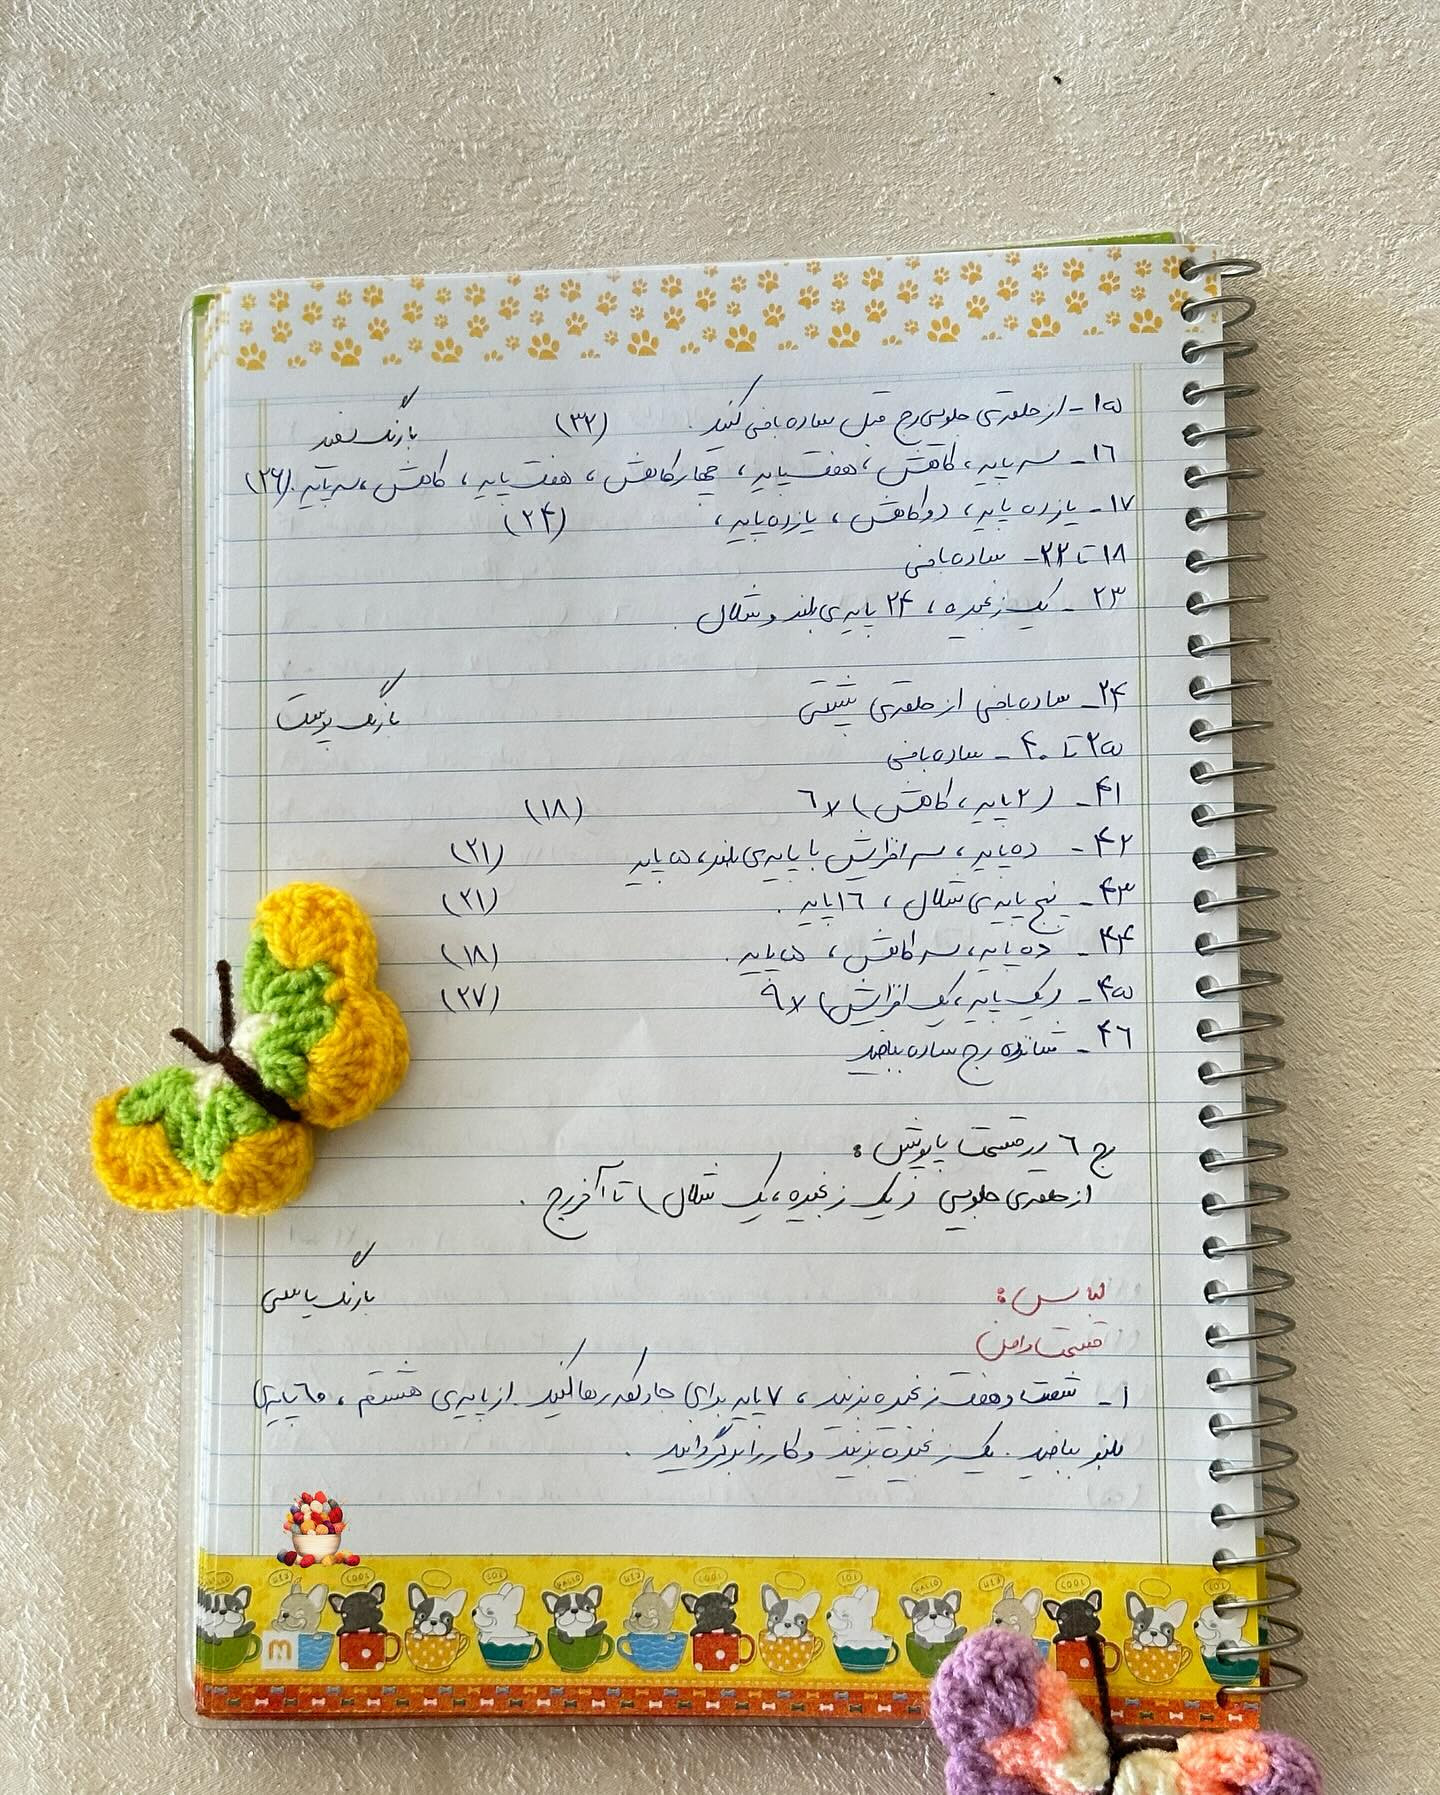 ۱۵- از حلقه‌ی جلویی رج قبل ساده بافی کنید. (۳۲) با رنگ سفید
۱۶- سه پایه، کاهش، هفت پایه، چهار کاهش، هفت پایه، کاهش، سه پایه. (۲۶)
۱۷- یازده پایه، دو کاهش، یازده پایه، (۲۴)
۱۸ تا ۲۲- ساده بافی
۲۳- یک زنجیره، ۲۴ پایه‌ی بلند و شلال.
۲۴- ساده بافی از حلقه‌ی پشتی با رنگ پوست
۲۵ تا ۴۰- ساده بافی
۴۱- (۲ پایه، کاهش) ۶x (۱۸)
۴۲- ده پایه، سه افزایش با پایه‌ی بلند، ۵ پایه (۲۱)
۴۳- پنج پایه‌ی شلال، ۱۶ پایه. (۲۱)
۴۴- ده پایه، سه کاهش، ۵ پایه. (۱۸)
۴۵- (یک پایه، یک افزایش) ۹x (۲۷)
۴۶- شانزده رج ساده ببافید
رج ۶ در قسمت پاپوش:
از حلقه‌ی جلویی (یک زنجیره، یک شلال) تا آخر رج.
لباس: با رنگ یاسی
قسمت دامن
۱- شصت و هفت زنجیره بزنید، ۷ پایه برای جادکمه رها کنید. از پایه‌ی هشتم، ۶۰ پایه‌ی
بلند ببافید. یک زنجیره بزنید و کار را برگردانید.
HALLO
HEY
COOL
LOL
HALLO
HEY
COOL
LOL
HALLO
HEY
COOL
LOL